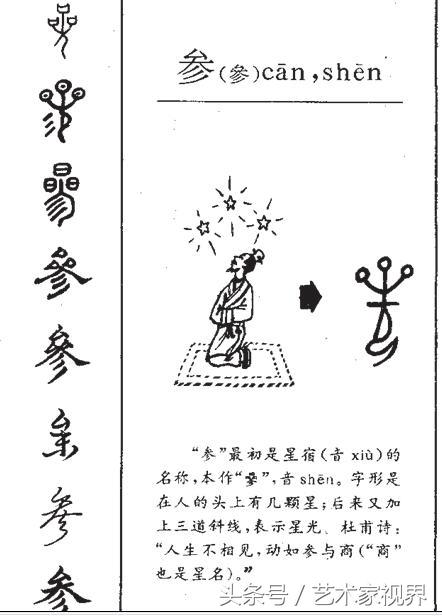 参(參)cān,shēn
"参"最初是星宿(音xiù)的
名称,本作"曑",音shēn。字形是
在人的头上有几颗星;后来又加
上三道斜线,表示星光、杜甫诗:
"人生不相见,动如参与商("商"
也是星名)。"
头条号/艺术家视界